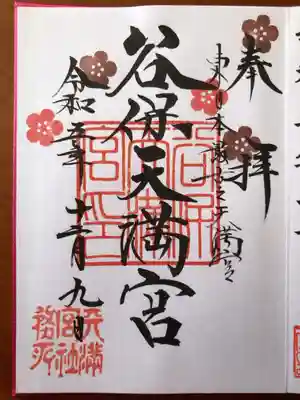 奉拝
東日本最古天満宮
谷保天満宮
令和五年十二月九日
天満宮社務所